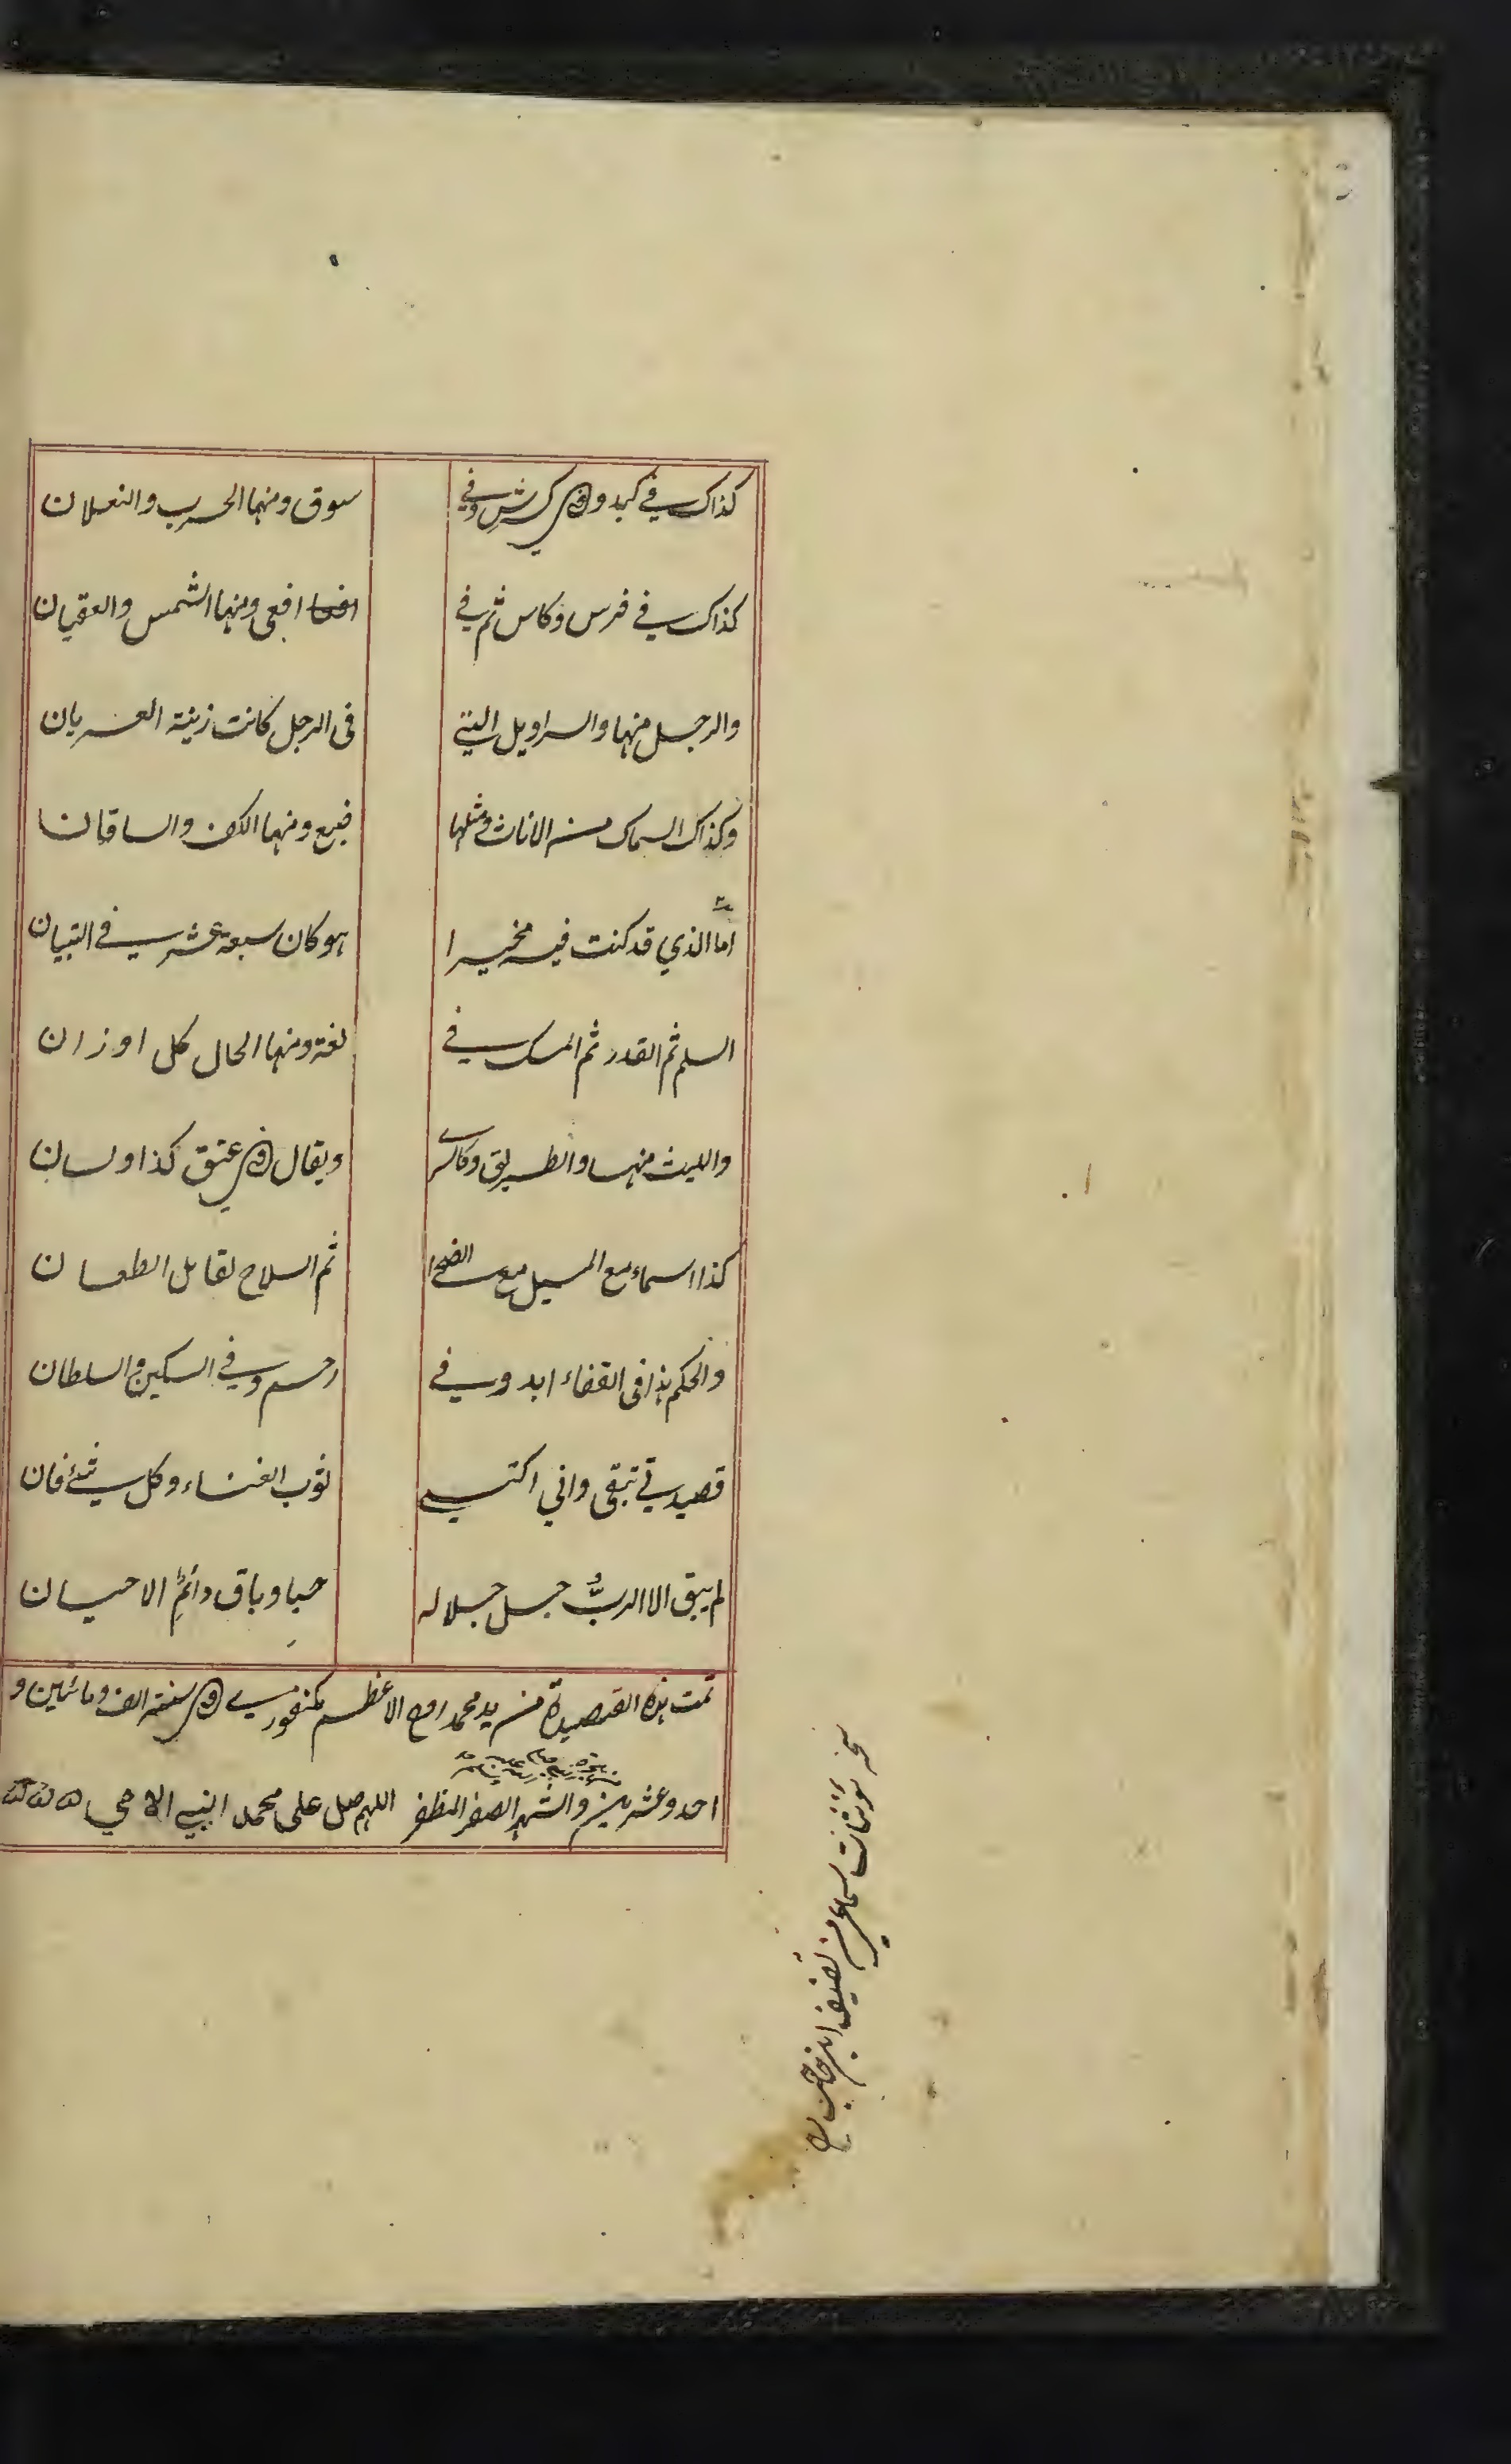 كذاك في كبد وفي كرش وفي سوق ومنها الحرب والنعلان
كذاك في فرس وكاس ثم في افعى ومنها الشمس والعقيان
والرجل منها والسراويل التي في الرجل كانت زينة العريان
وكذاك السماك من الاناث ومثلها ضبع ومنها الكف والساقان
اما الذي قد كنت فيه مخيرا هو كان سبعة عشر في التبيان
السلم ثم القدر ثم المسك في لغة ومنها الحال كل اوزان
والليث منها والطريق وكالسرى ويقال في عنق كذا ولسان
كذا اسماء مع السبيل مع الضحى ثم السلاح لقاتل الطعان
والحكم هذا في القفاء ابد وفي رحم وفي السكين والسلطان
قصيدتي تبقى واني اكتسي ثوب الفناء وكل شئ فان
لم يبق الا الرب جل جلاله حيا وباق دائم الاحسان
تمت هذه القصيدة من يد محمد روح الاعظم في سنة الف ومائتين و
احد وعشرين والشهر الصفر المظفر اللهم صل على محمد النبي الامي
مؤنثات سماعي من تصنيف ابن حاجب